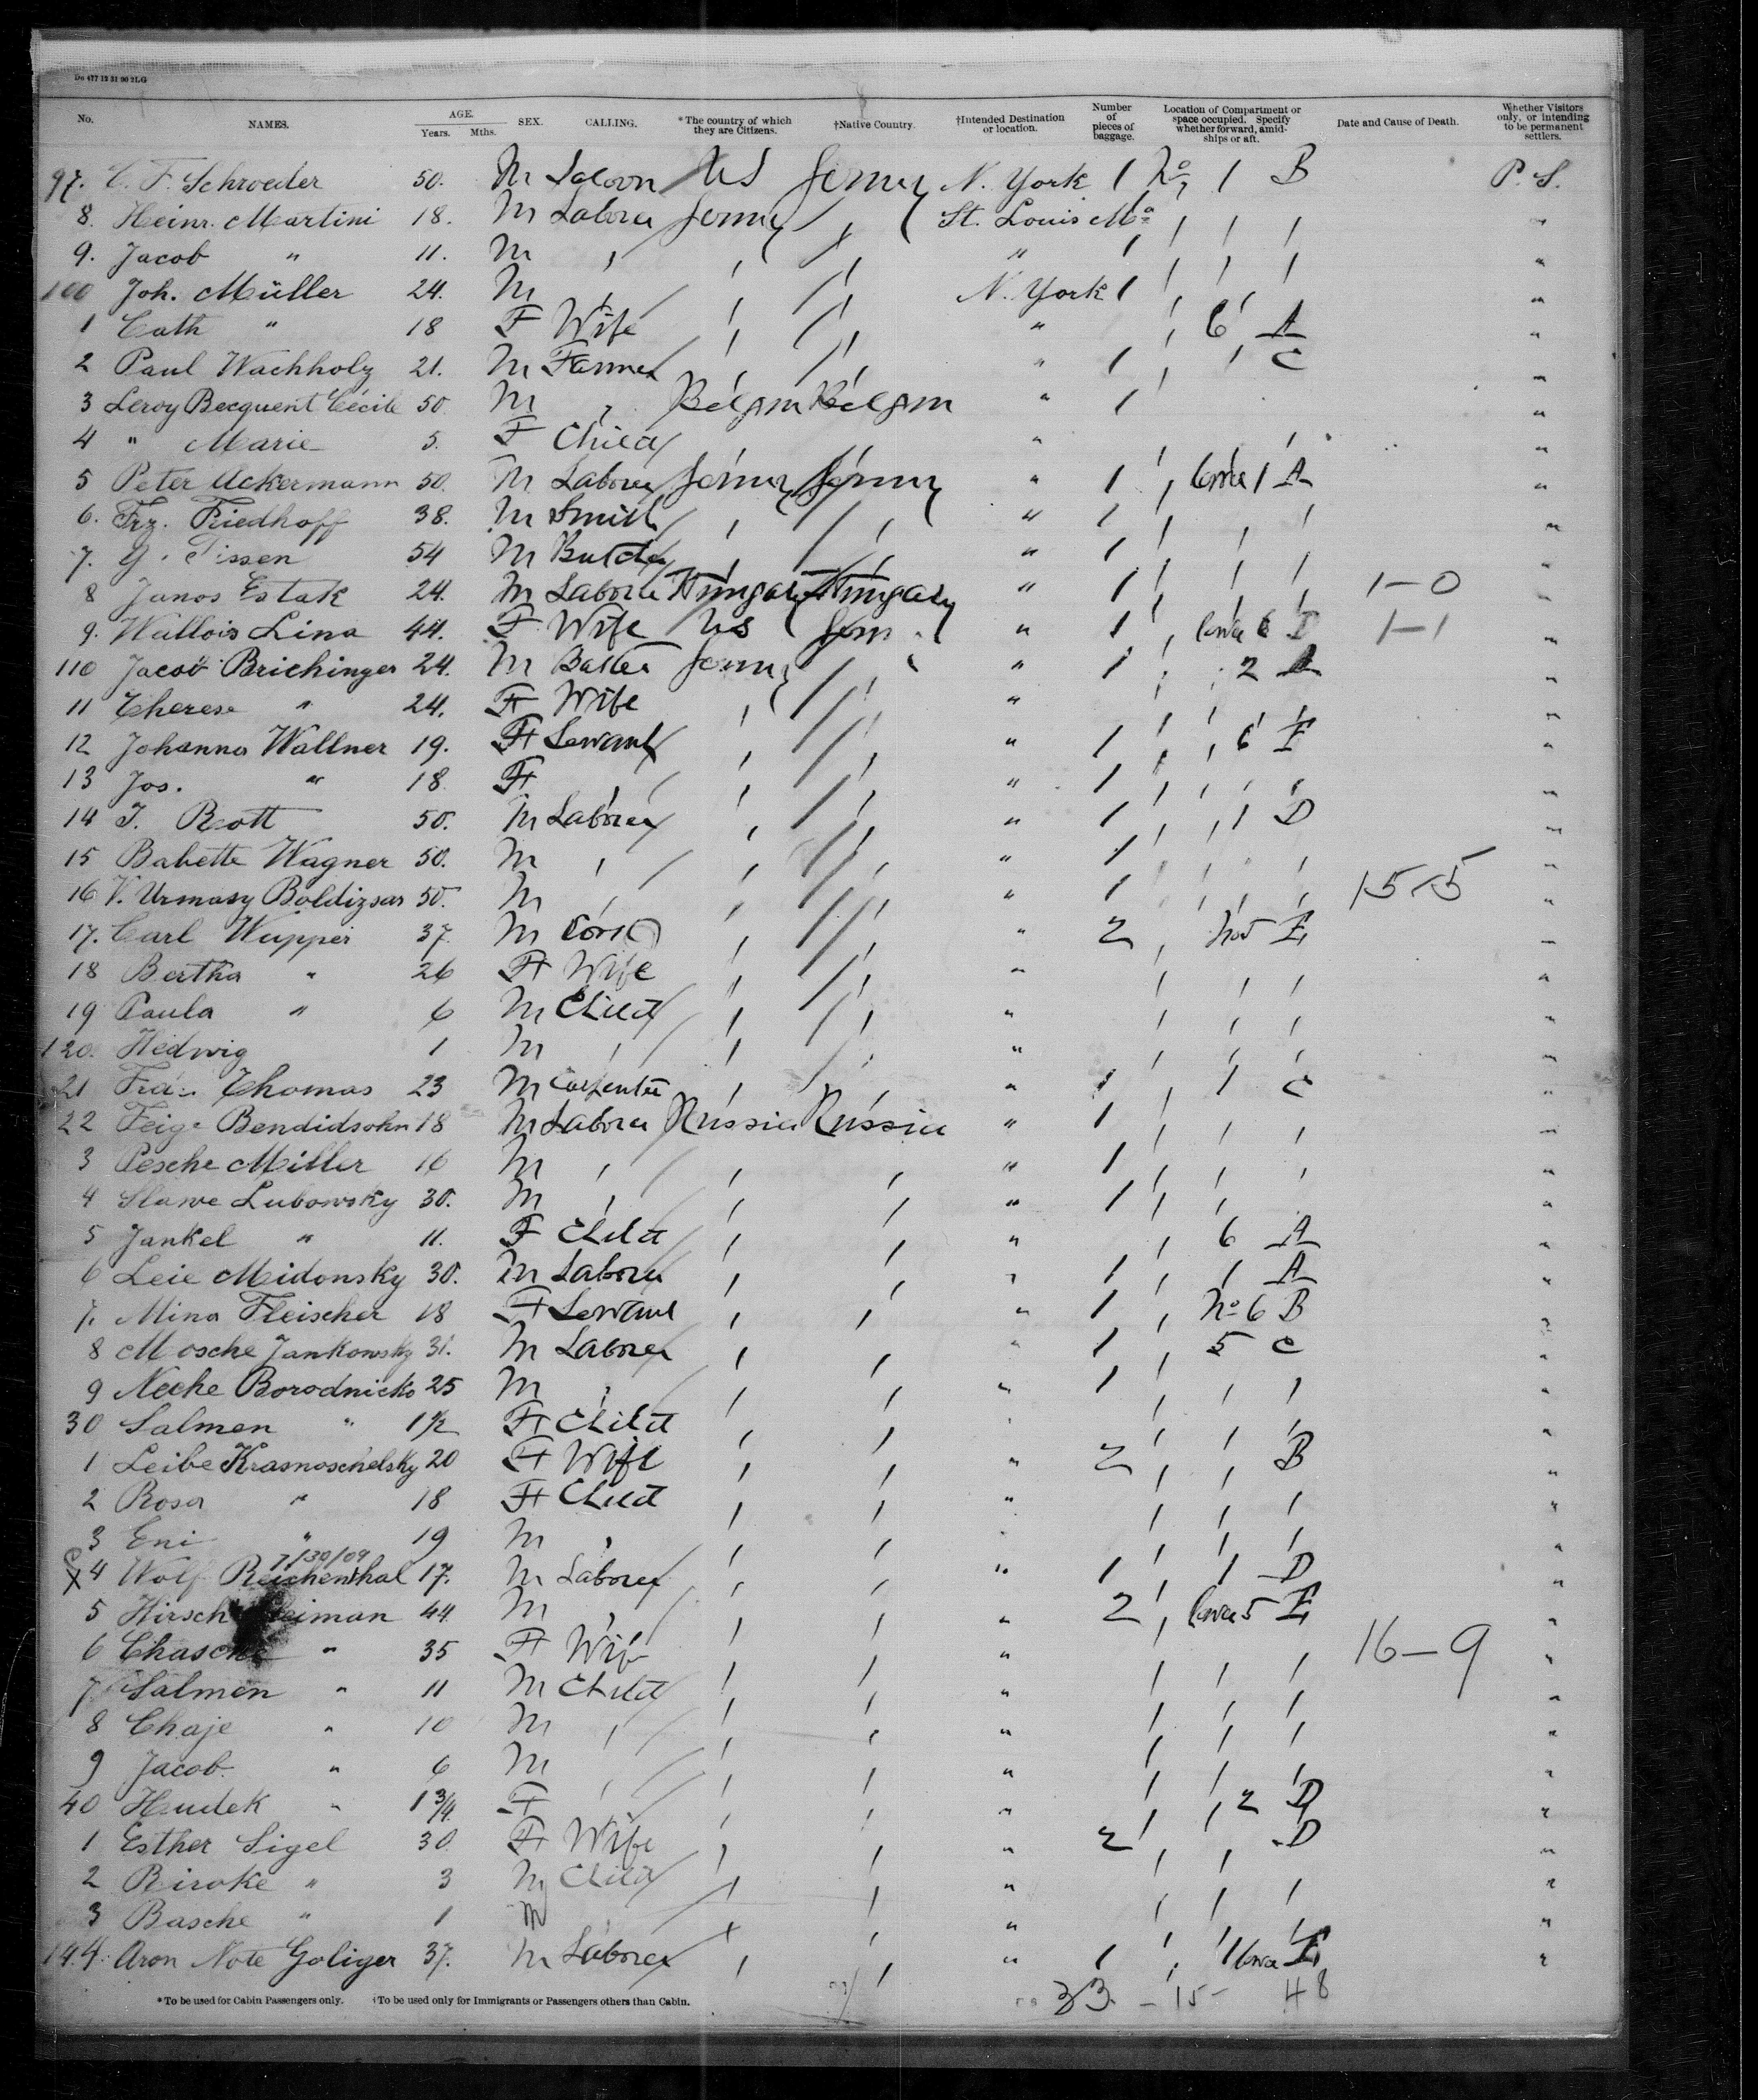 Do 477 12 31 90 2LG
No. NAMES. AGE. Years. Mths. SEX. CALLING. *The country of which they are Citizens. †Native Country. †Intended Destination or location. Number of pieces of baggage. Location of Compartment or space occupied. Specify whether forward, amidships or aft. Date and Cause of Death. Whether Visitors only, or intending to be permanent settlers.
97. C. F. Schroeder 50. M US N. York 1 No 1 B P. S.
8. Heinr. Martini 18. M Laborer St. Louis Mo "
9. Jacob " 11. M " "
100 Joh. Müller 24. M N. York 1 "
1 Cath " 18 F Wife " 6 A "
2 Paul Wachholz 21. M Farmer " 1 C "
3 Leroy Becquent Cécile 50. M Belgm Belgm " 1 "
4 " Marie 5. F Child " "
5 Peter Ackermann 50. M Laborer " 1 1 A "
6. Frz. Friedhoff 38. M Smith " 1 "
7. Tissen 54 M Butcher " 1 "
8 Janos Estak 24. M Laborer Hungary Hungary " 1 1-0 "
9. Wallois Lina 44. F Wife US Germ. " 1 6 1-1 "
110 Jacob Brichinger 24. M " 1 2 A "
11 Therese " 24. F Wife " "
12 Johanna Wallner 19. F Servant " 1 6 "
13 Jos. " 18 F " 1 "
14 J. Rott 50. M Laborer " 1 1 D "
15 Babette Wagner 50. M " 1 "
16 V. Urmasy Boldizsar 50. M " 1 15-5 "
17. Carl Wupper 37. M " 2 No 5 E "
18 Bertha " 26 F Wife " "
19 Paula " 6 M Child " "
120. Hedwig 1 M " "
21 Thomas 23 M Carpenter " 1 1 C "
22 Feige Bendidsohn 18 M Laborer Russia Russia " 1 "
3 Pesche Miller 16 M " 1 "
4 Slawe Lubowsky 30. M " 1 "
5 Jankel " 11. F Child " 6 A "
6 Leie Midonsky 30. M Laborer " 1 1 A "
7. Mina Fleischer 18 F Servant " 1 No 6 B "
8 Mosche Jankowsky 31. M Laborer " 1 5 C "
9 Neche Borodnicko 25 M " 1 "
30 Salmen " 1 1/2 F Child "
1 Leibe Krasnoschelsky 20 F Wife " 2 B "
2 Rosa " 18 F Child " "
3 Eni " 19 M "
7/30/09
X 4 Wolf Reichenthal 17. M Laborer " 1 1 D "
5 Hirsch 44. M " 2 5 E "
6 Chasche " 35 F Wife " 16-9 "
7 Salmen " 11 M Child " "
8 Chaje " 10 M " "
9 Jacob " 6 M " "
40 Hudek " 1 3/4 F " 2 D "
1 Esther Sigel 30 F Wife " 2 D "
2 Riroke " 3 M Child " "
3 Basche " 1 M " "
144. Aron Note Goliger 37. M Laborer " 1 E "
33 - 15 - 48
*To be used for Cabin Passengers only. †To be used only for Immigrants or Passengers others than Cabin.